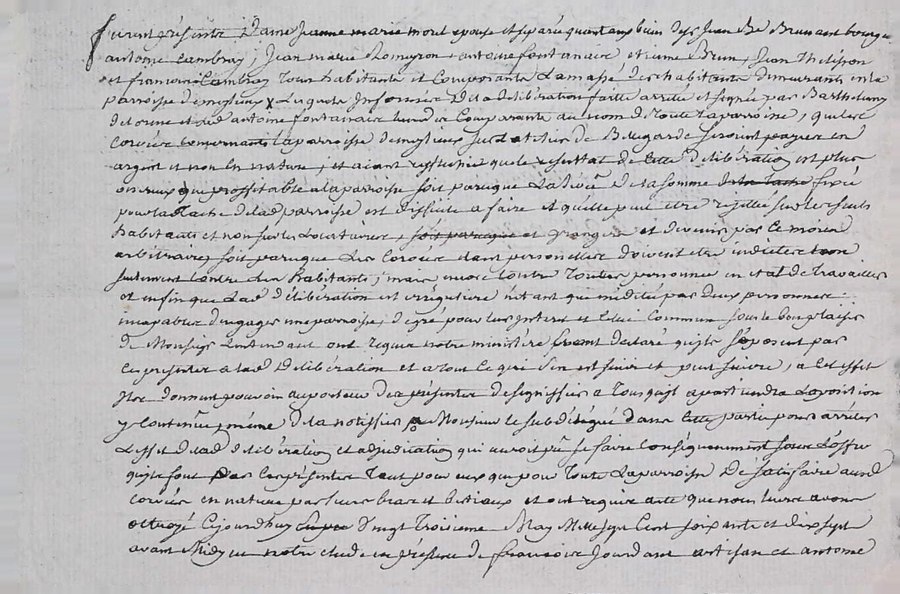 furent présents Dame Jeanne marie morel epouse et séparée quant aux biens de Sr Jean Be Brun aut bourg
antoine Cambray, Jean marie antoine fontanaire etienne Brun, Jean
et francois Cambray Tous habitants et Composants La masse des habitants demeurants en la
parroisse de mysieux x Lesquels Informés De la deliberation faitte arretée et signée par Barthelemy
delorme et led antoine fontanaire Comparants au nom de toute la parroisse, que les
Corvées Concernants la parroisse de mysieux sur de Bellegarde seroient payées en
argent et non en nature, et aiant reffléchie que le resulttat de Cette deliberation est plus
onereux que proffitable a la parroisse soit parceque La Levée De la somme fixée
pour la tache de lad parroisse est difficile a faire et qu'elle peut etre rejettée sur les seuls
habitants et non sur les Locataires, soit parceque et grangers et devenir par ce moien
arbitraire, soit parceque Les Corvées etant personnelles doivent etre non
seulement Contre des habitants, mais encore Contre Touttes personnes en etat de travailler
et enfin que Lad deliberation est irrégulliere n'etant que par deux personnes
incapables d'engager une parroisse, de gré pour leur interet et Celui Commun sous le bon plaisir
de Monsieur Lintendant ont requis notre ministère et declaré qu'ils s'oposent par
Ces présentes a lad Deliberation et a tout Ce qui s'en est suivi et peut suivre, a Cet effet
Nor donnent pouvoir au porteur des présentes de signiffier a Tous qu'il apartiendra La position
y Contenüe, même de la notiffier a Monsieur le subdélégué dans Cette partie pour arreter
L'effet de lad deliberation et adjudication qui auroit pû se faire Conséquemment sous L'offre
qu'ils font par Ces présentes Tant pour eux que pour Toute La parroisse De satisfaire aux d
Corvées en nature par leurs bras et bestiaux et ont requis acte que nous leurs avons
octroyé Cejourdhuy vingt Troisieme May Mil sept Cent soixante et dix sept
avant Midy en notre etude en présence de francois Jourdant artisan et antoine